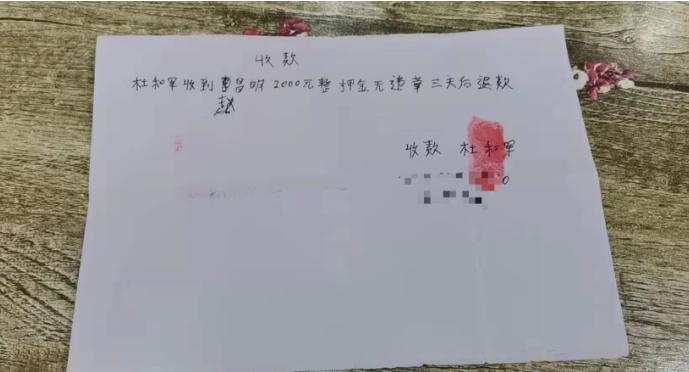 收款
杜和军收到曹昌明2000元整 押金无违章三天后退款
收款 杜和军